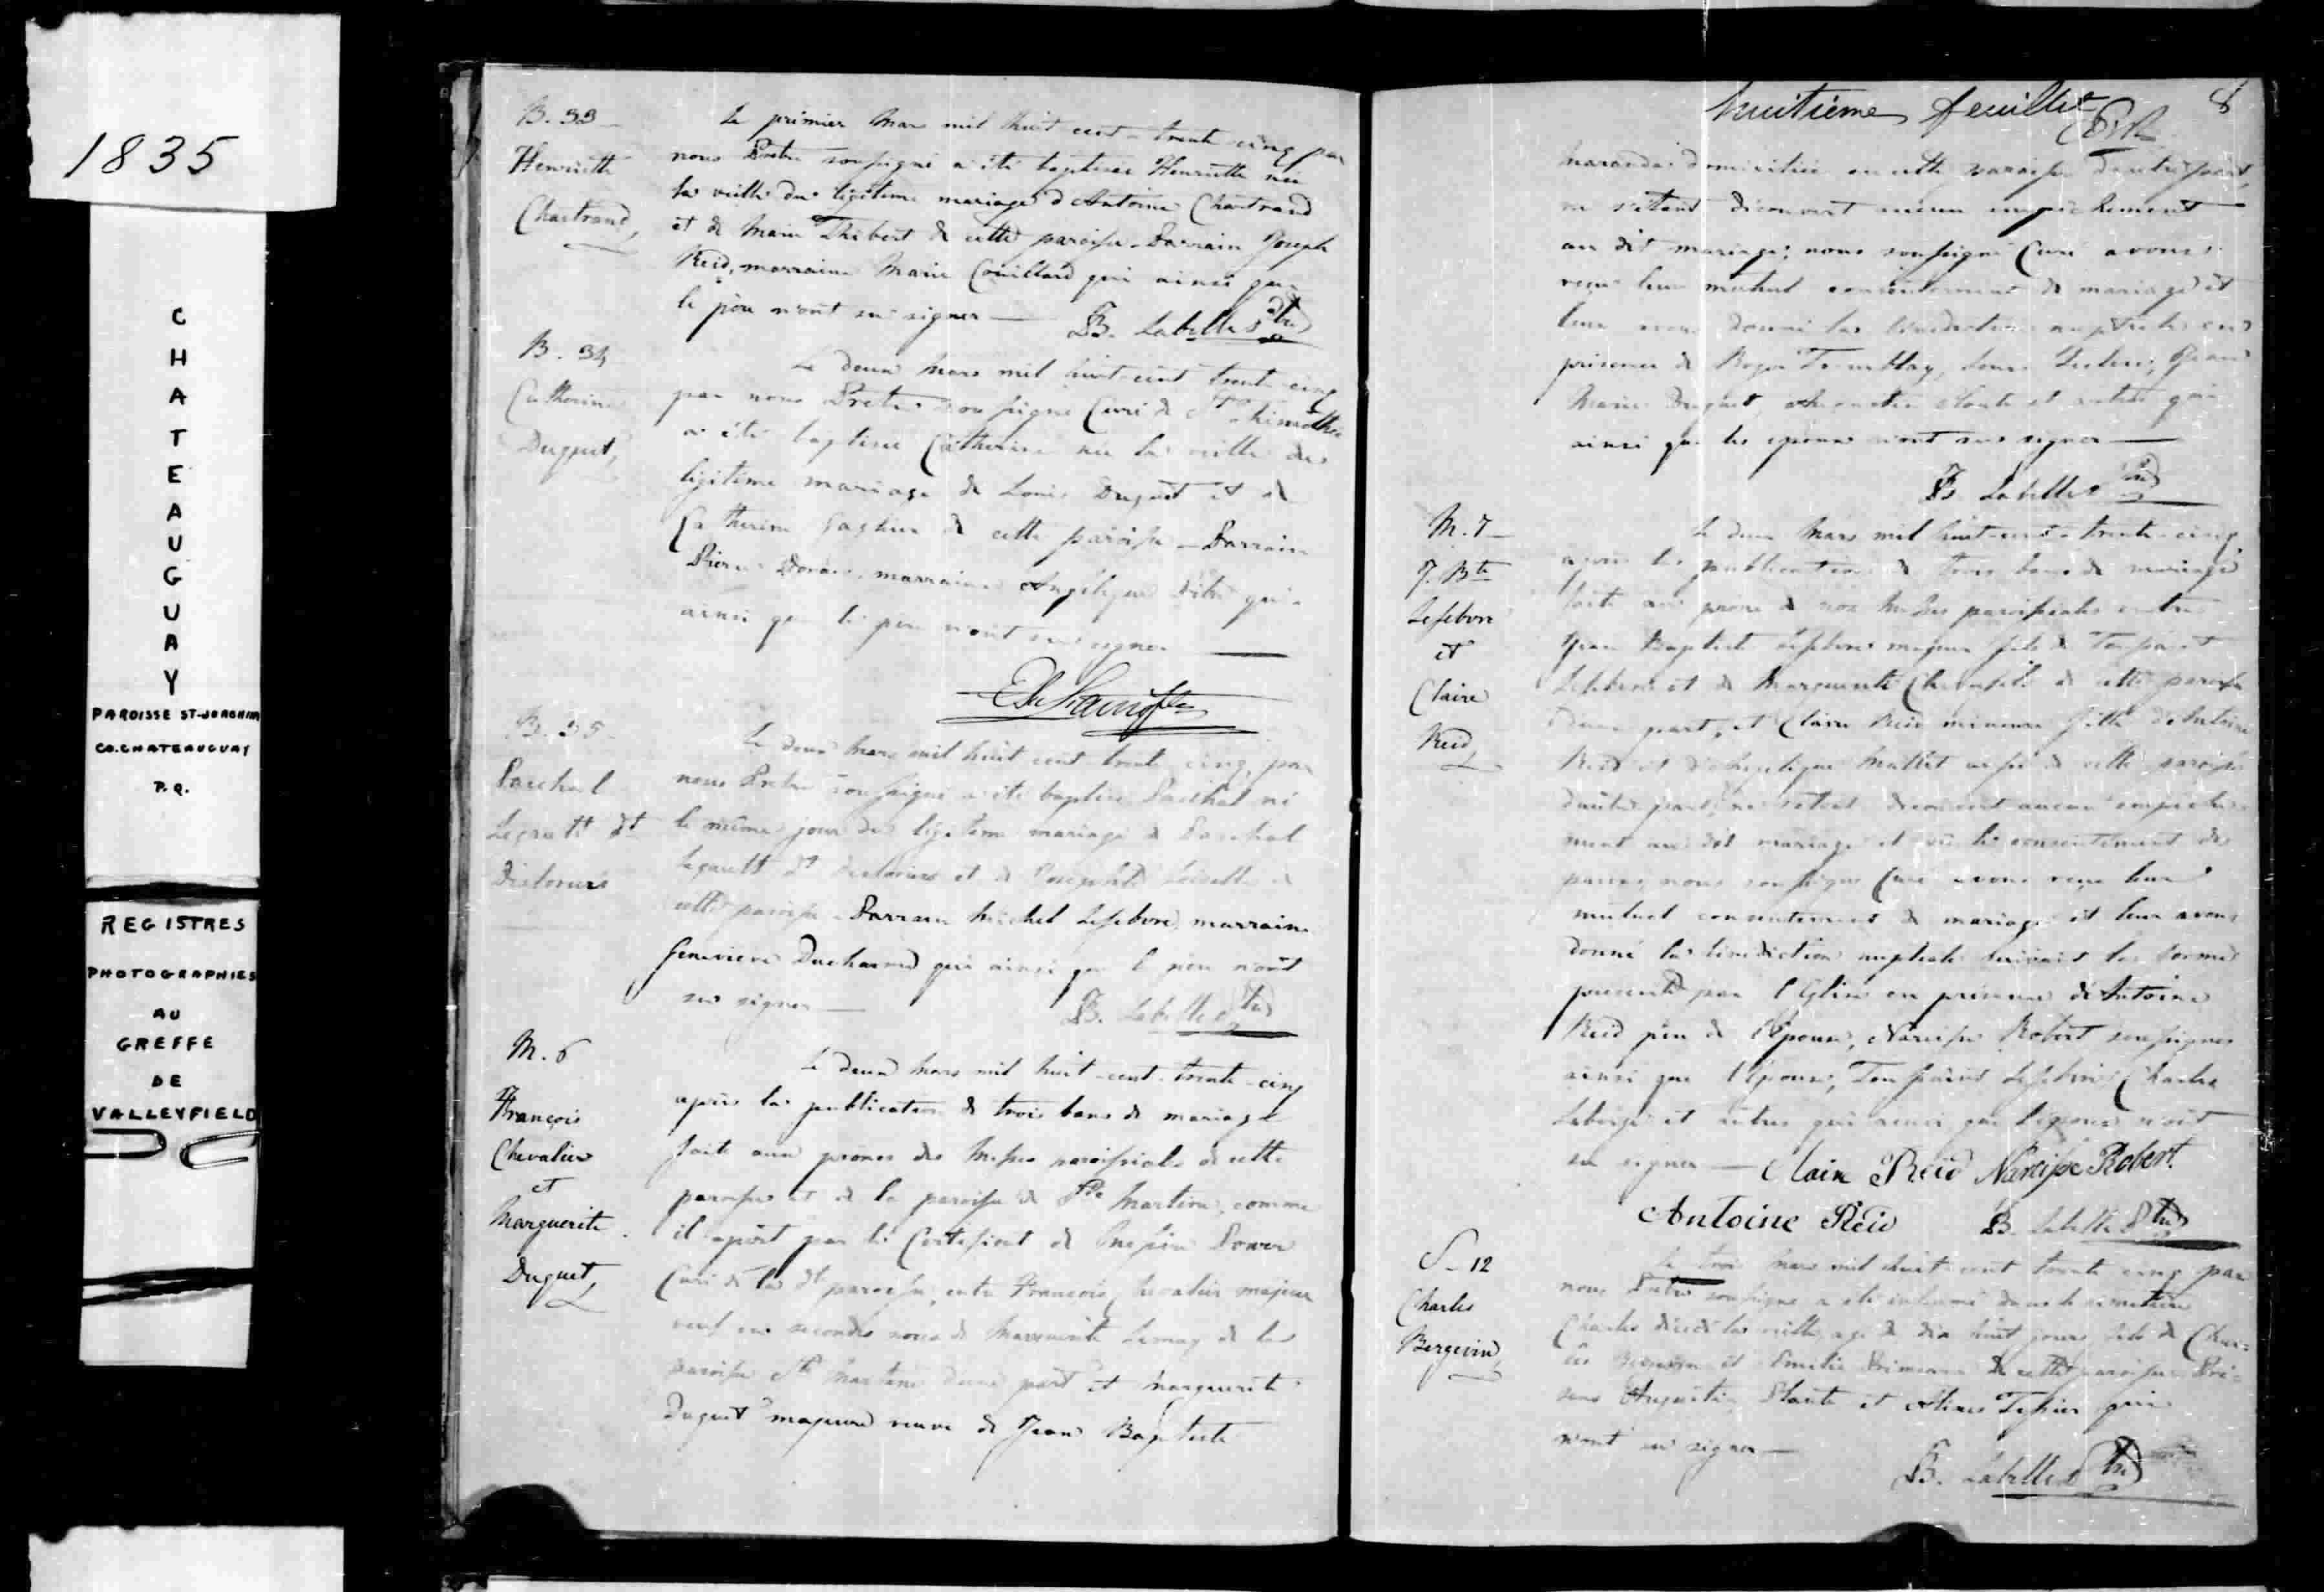 1835
CHATEAUGUAY
PAROISSE ST-JOACHIM
CO. CHATEAUGUAY
P.Q.
REGISTRES
PHOTOGRAPHIES
AU
GREFFE
DE
VALLEYFIELD
B. 33
Henriette
Chartrand
Le primier Mars mil huit cent trente cinq par
nous Prêtre soussigné a été baptisée Henriette née
la veille du légitime mariage d'Antoine Chartrand
et de Marie Thibert de cette paroisse Parrain Joseph
Reid, marraine Marie Couillard qui ainsi que
le père n'ont su signer — B. Labelle Ptre
B. 34
Catherine
Duquet
Le deux Mars mil huit-cent trente-cinq
par nous Prêtre soussigné Curé de St
a été baptisée Catherine née la veille du
légitime mariage de Louis Duquet et de
Catherine de cette paroisse — Parrain
Pierre marraine Angélique qui
ainsi que le père n'ont su signer —
B. 35
Paschal
Legault dt
Deslorier
Le deux Mars mil huit cent trente cinq, par
nous Prêtre soussigné a été baptisé Paschal né
le même jour du légitime mariage de Paschal
Legault dt et de
cette paroisse Parrain Michel Lefebvre, marraine
Genevieve Ducharme qui ainsi que le père n'ont
su signer — B. Labelle Ptre
M. 6
François
Chevalier
et
Marguerite
Duquet
Le deux Mars mil huit-cent-trente-cinq
après la publication de trois bans de mariage
faite aux prones des Messes paroissiales de cette
paroisse et de la paroisse de Ste Martine, comme
il apert par le Certificat de Messire Power
Curé de la dt paroisse, entre François Chevalier majeur
veuf en secondes noces de Marguerite Lemay de la
paroisse Ste Martine d'une part et Marguerite
Duquet majeure veuve de Jean Baptiste
huitieme feuillet 8
domiciliée en cette paroisse d'autre part,
ne s'étant découvert aucun empêchement
au dit mariage; nous soussigné Curé avons
reçu leur mutuel consentement de mariage et
leur avons donné la bénédiction nuptiale en
présence de Tremblay, Louis Jean
Marie Duquet, et autres qui
ainsi que les époux n'ont su signer —
B. Labelle Ptre
M. 7
J. Bte
Lefebvre
et
Claire
Reid
Le deux Mars mil huit-cent-trente-cinq,
après la publication de trois bans de mariage
faite au prone de nos Messes paroissiales entre
Jean Baptiste Lefebvre majeur fils de Toussaint
Lefebvre et de Marguerite de cette paroisse
d'une part, et Claire Reid mineure fille d'Antoine
Reid et d'Angelique Mallet de cette paroisse
d'autre part, ne s'étant découvert aucun empêche
ment au dit mariage et vû le consentement des
parens, nous soussigné Curé avons reçu leur
mutuel consentement de mariage et leur avons
donné la bénédiction nuptiale suivant la forme
prescrite par l'Eglise en présence d'Antoine
Reid père de l'épouse, Narcisse Robert soussignés
ainsi que l'épouse, Toussaint Lefebvre, Charles
Laberge et autres qui ainsi que l'époux n'ont
su signer — Claire Reid Narcisse Robert
Antoine Reid B. Labelle Ptre
S. 12
Charles
Bergevin
Le trois Mars mil huit cent trente cinq par
nous Prêtre soussigné a été inhumé dans le cimetière
Charles décédé la veille agé de dix huit jours fils de Char-
les Bergevin et Emilie Primeau de cette paroisse Pré-
sens Augustin Plante et Alexis Tessier qui
n'ont su signer —
B. Labelle Ptre